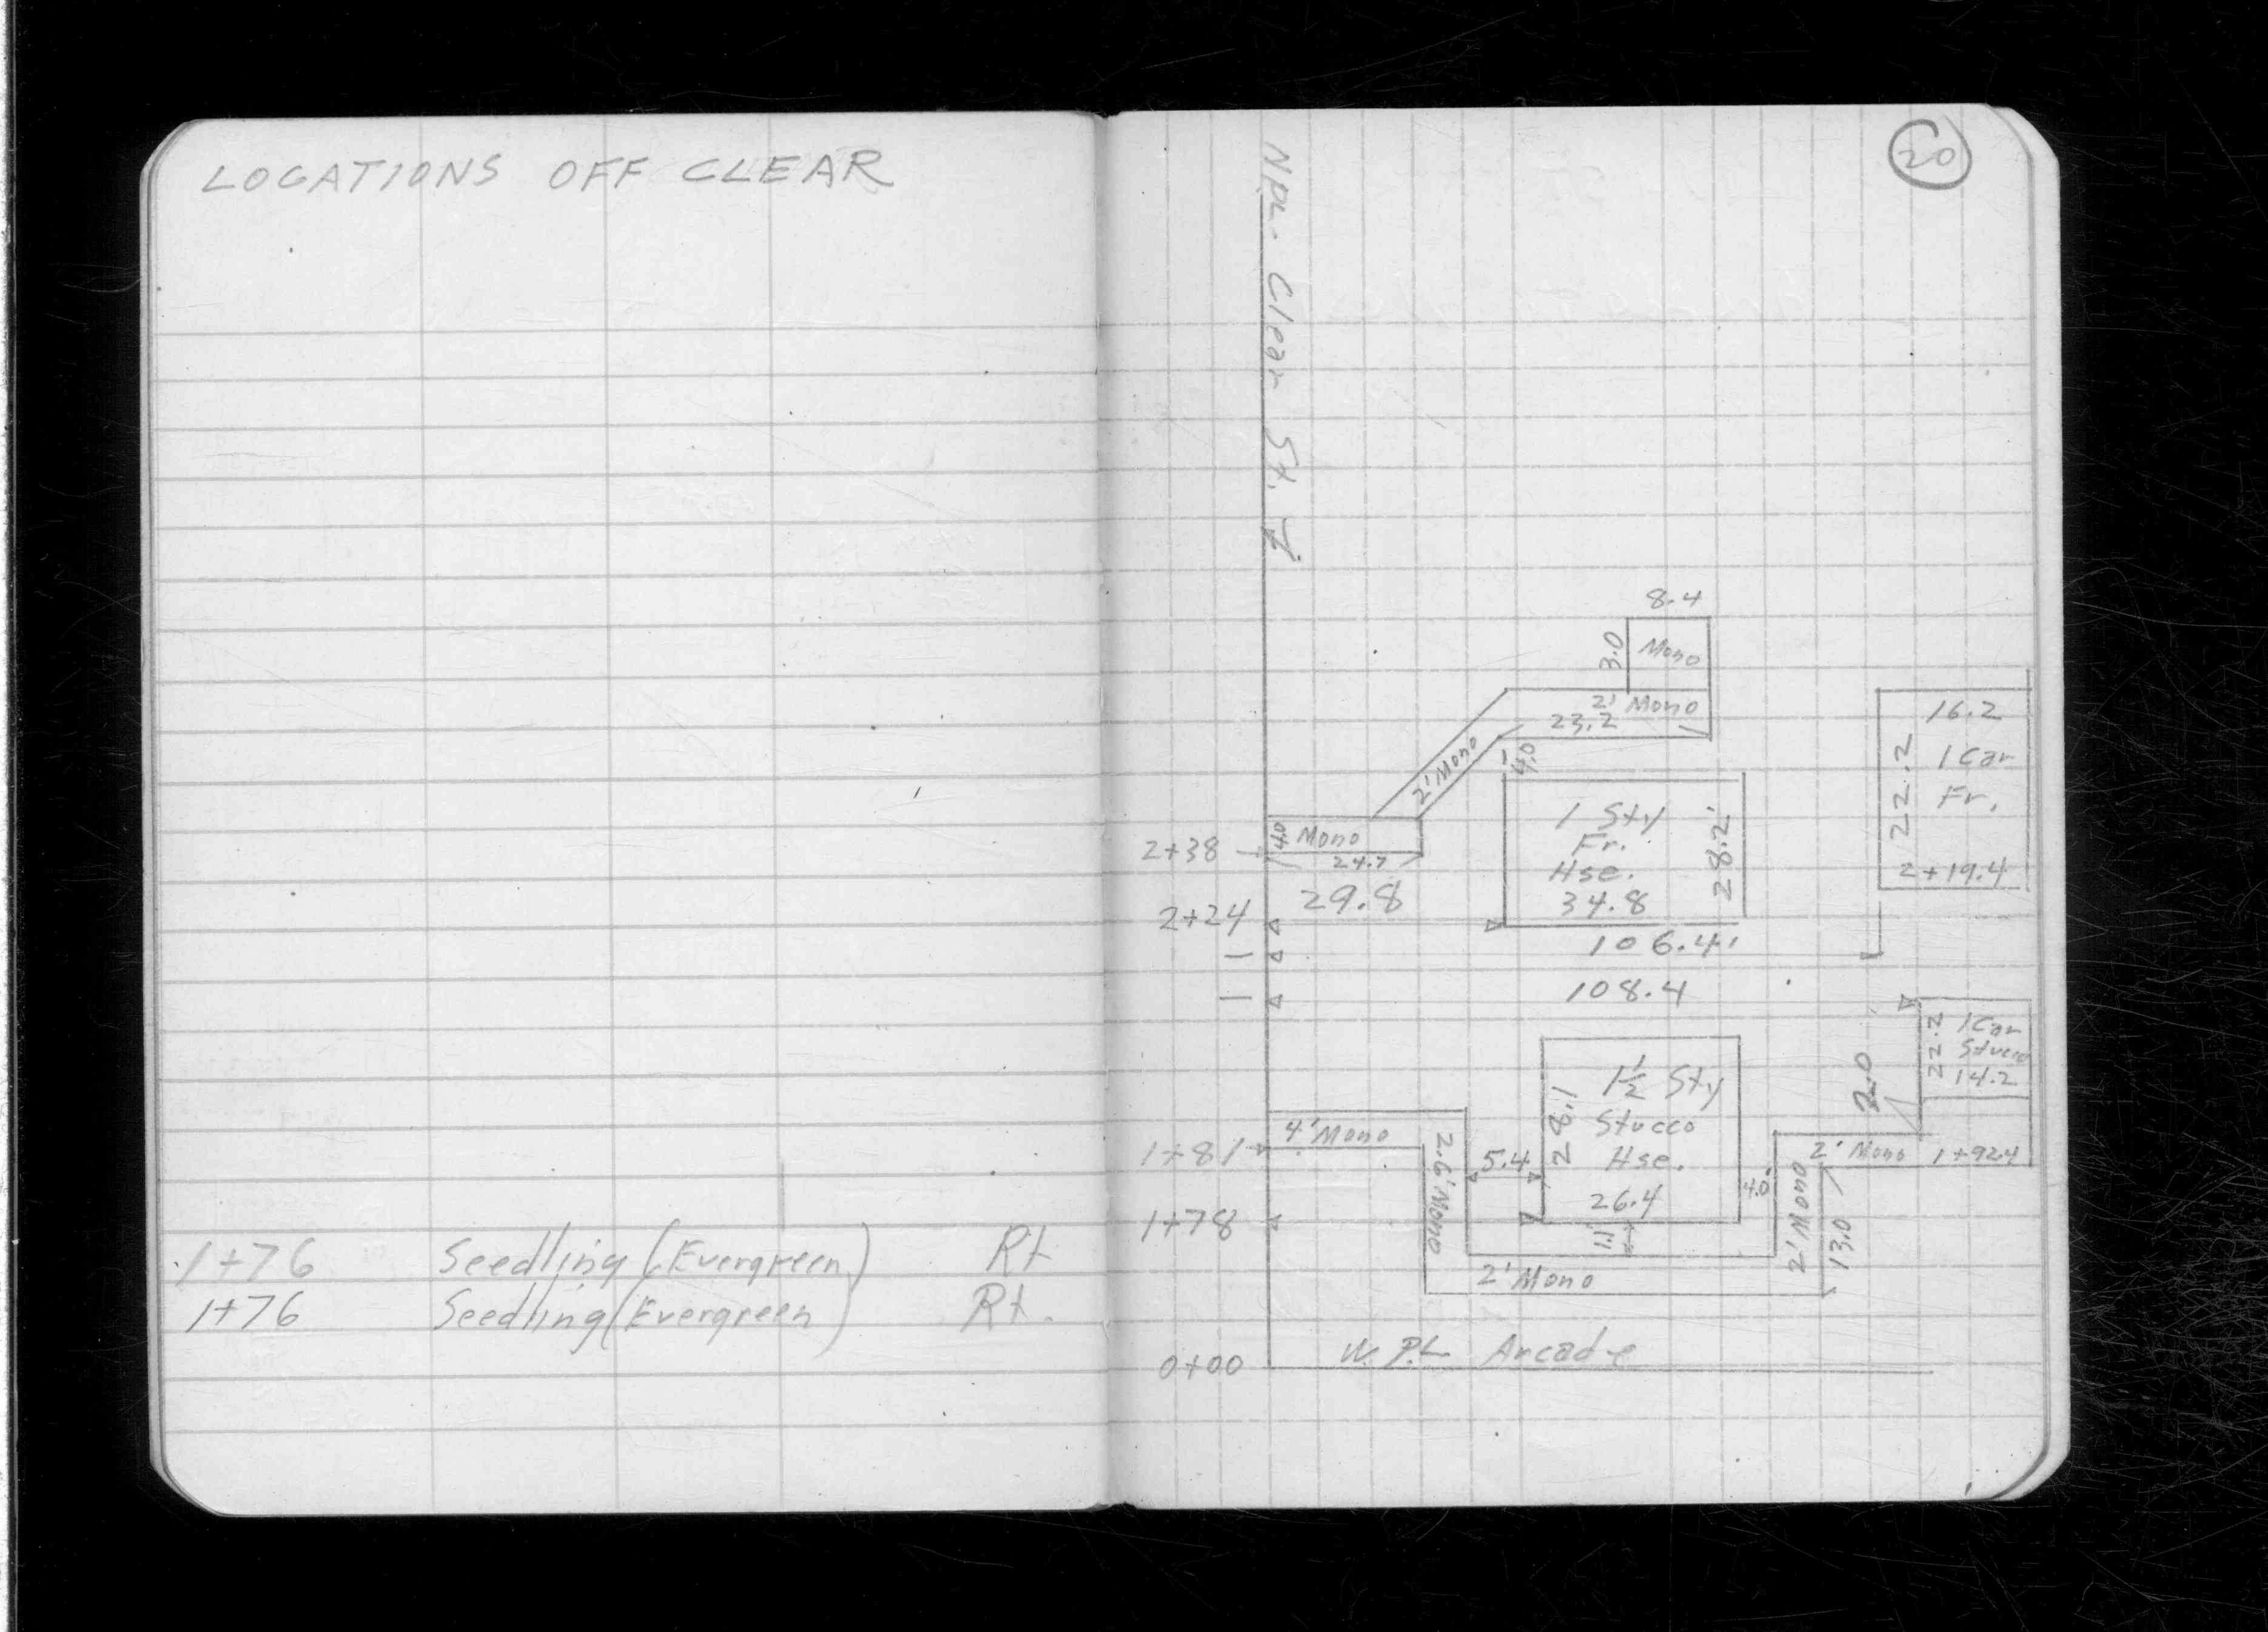 LOCATIONS OFF CLEAR
1+76 Seedling (Evergreen) Rt
1+76 Seedling (Evergreen) Rt.
20
Clear St.
8.4
3.0 Mono
2' Mono
23.2
2' Mono
4.0
16.2
22.2
1 Car
Fr.
2+19.4
1 Sty
Fr.
Hse.
34.8
28.2'
2+38
4.0 Mono
24.7
29.8
2+24
106.4'
108.4
22.2
1 Car
Stucco
14.2
2.0
1½ Sty
Stucco
Hse.
26.4
28.1
1+81
4' Mono
2.6' Mono
5.4
4.0'
2' Mono 1+92.4
2' Mono
13.0
1+78
1.1
2' Mono
0+00
W. P.L Arcade